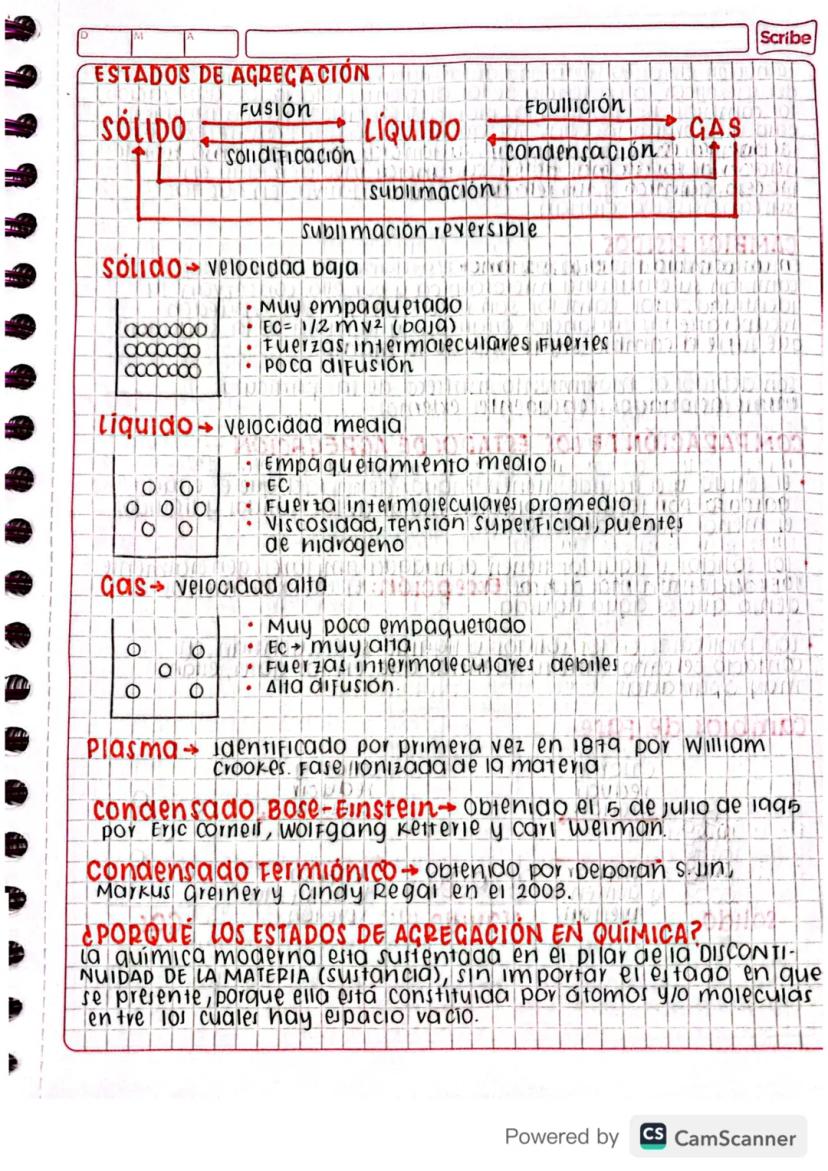 D M A
Scribe
ESTADOS DE AGREGACIÓN
Fusión Ebullición
SÓLIDO LÍQUIDO GAS
Solidificación Condensación
Sublimación
Sublimación reversible
Sólido → Velocidad baja
• Muy empaquetado
• EC= 1/2 mv² (baja)
• Fuerzas intermoleculares Fuertes
• Poca difusión
Líquido → Velocidad media
• Empaquetamiento medio
• EC
• Fuerza intermoleculares promedio
• Viscosidad, Tensión superficial, puentes
de hidrógeno
Gas → Velocidad alta
• Muy poco empaquetado
• Ec → muy alta
• Fuerzas intermoleculares débiles
• Alta difusión.
Plasma → Identificado por primera vez en 1879 por William
Crookes. Fase ionizada de la materia
Condensado Bose-Einstein → Obtenido el 5 de julio de 1995
por Eric Cornell, Wolfgang Ketterle y Carl Weiman.
Condensado Fermiónico → Obtenido por Deborah S. Jin,
Markus Greiner y Cindy Regal en el 2003.
¿PORQUÉ LOS ESTADOS DE AGREGACIÓN EN QUÍMICA?
La química moderna esta sustentada en el pilar de la DISCONTI-
NUIDAD DE LA MATERIA (sustancia), sin importar el estado en que
se presente, porque ella está constituida por átomos y/o moléculas
entre los cuales hay espacio vacío.
Powered by CS CamScanner